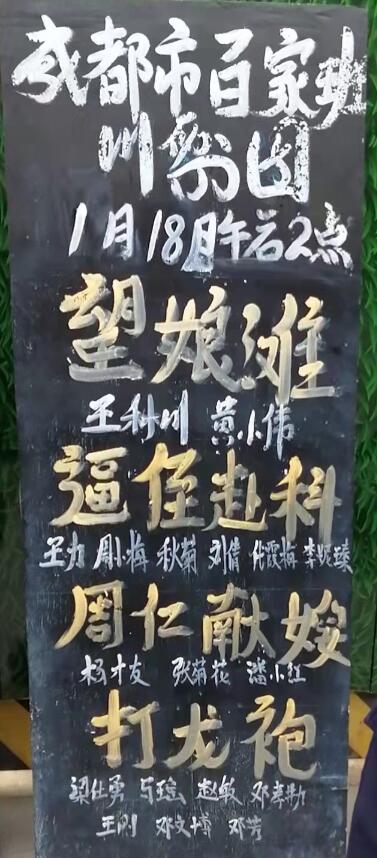 成都市百家班
川剧团
1月18日午后2点
望娘滩
王秋川 黄小伟
逼侄赴科
王力 周小梅 秋菊 刘倩 代霞梅 李妮臻
周仁献嫂
杨才友 张菊花 潘小红
打龙袍
梁仕勇 马瑶 赵敏 邓孝勤
王刚 邓文博 邓芳